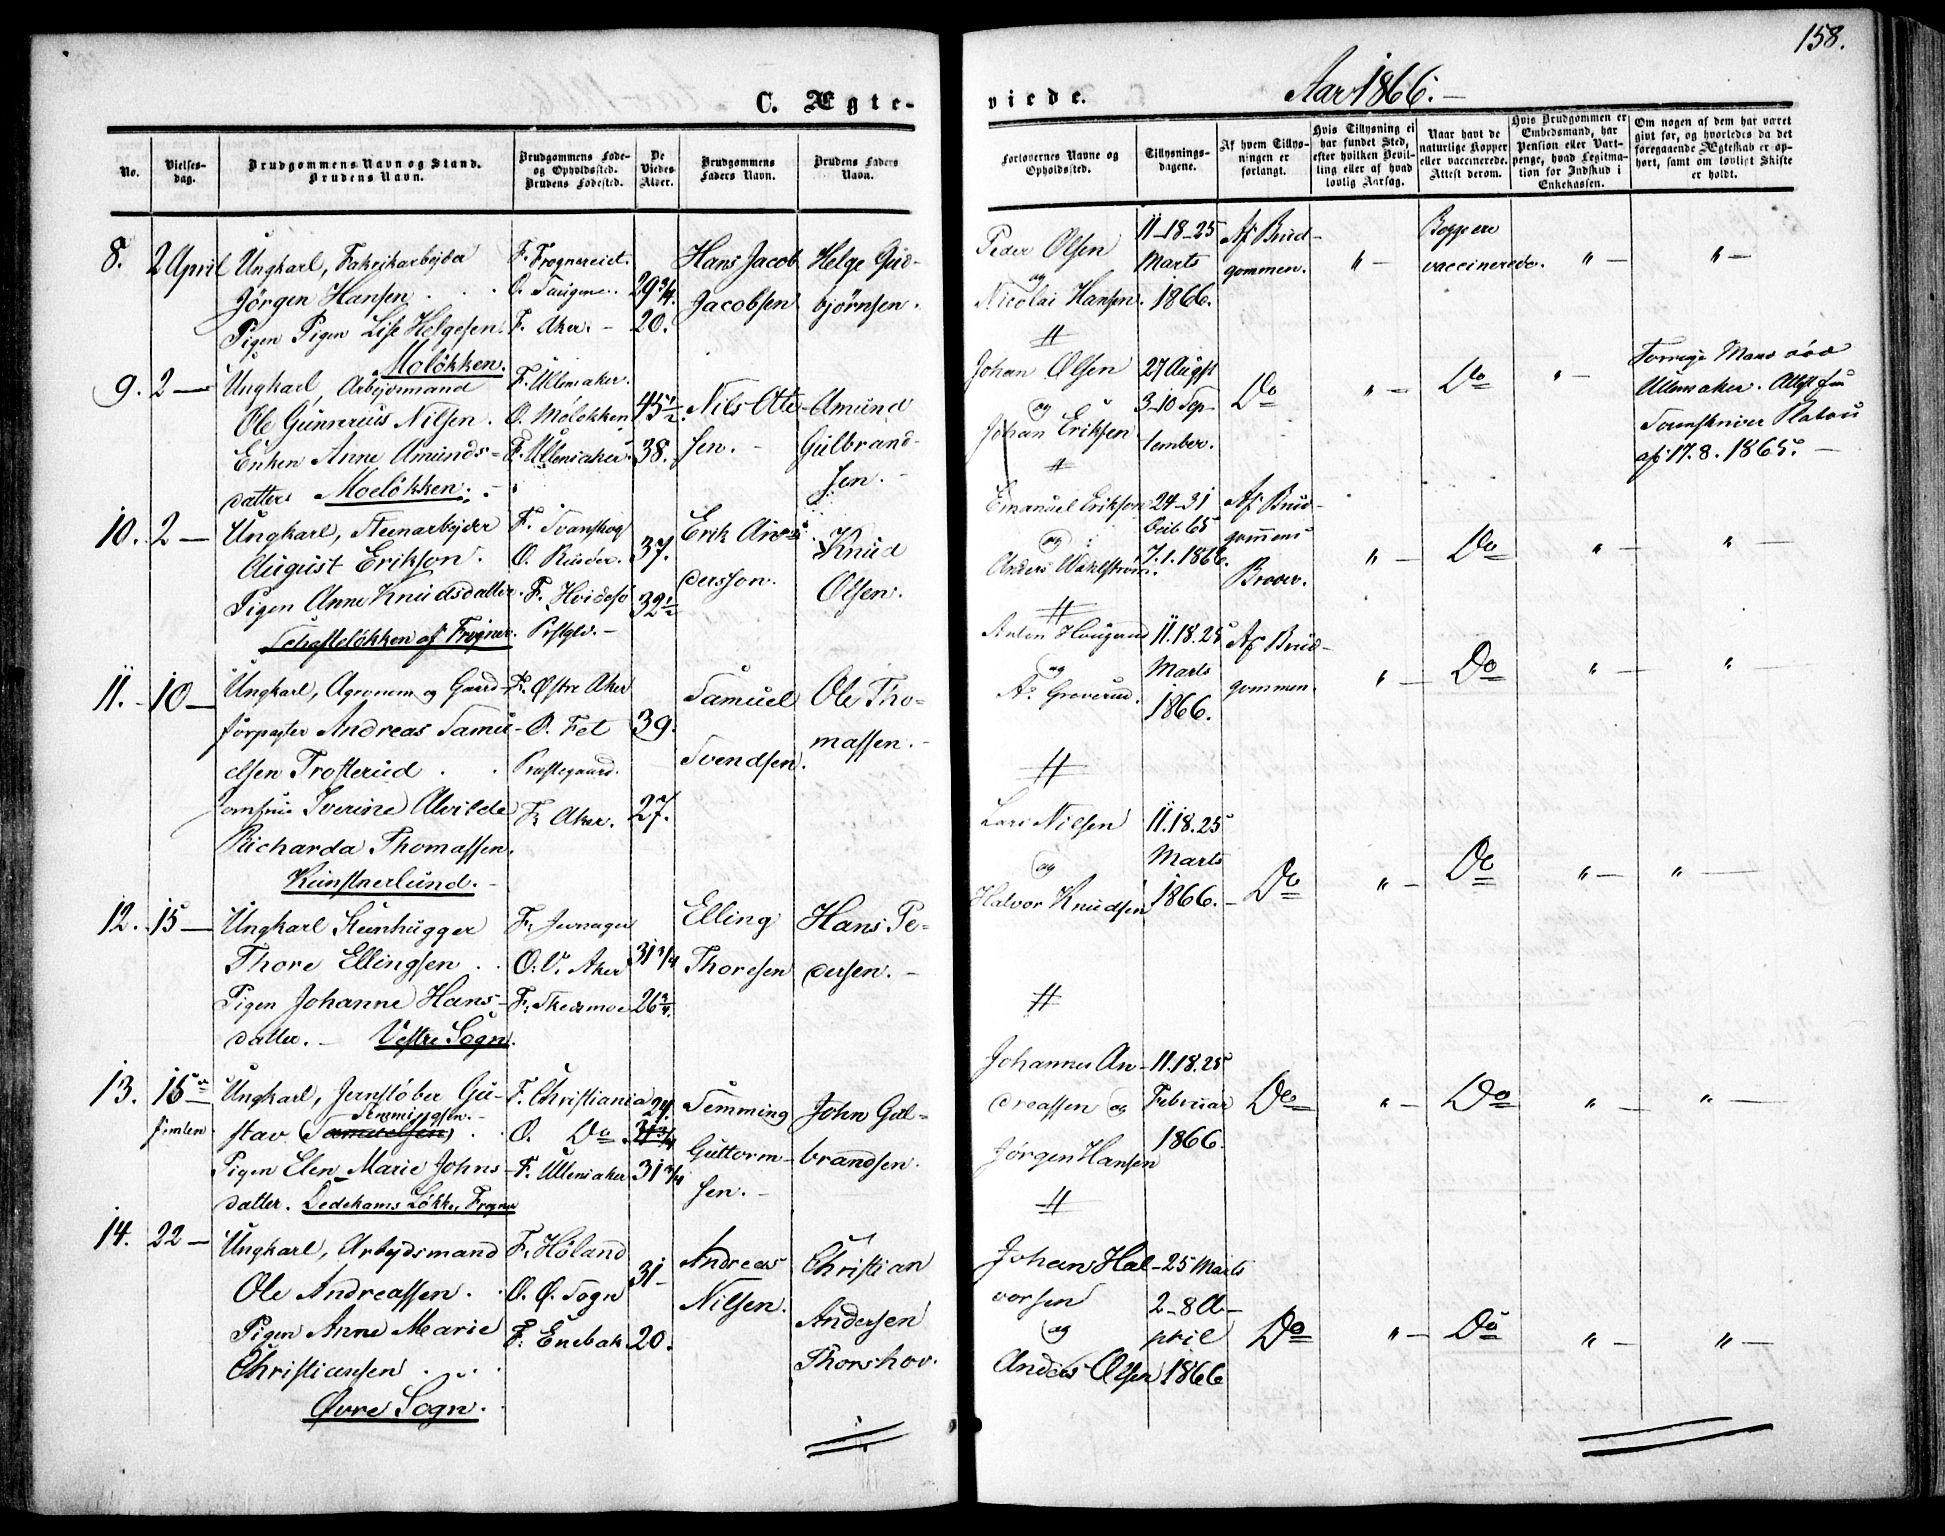 158.
C. Ægte-
viede.
Aar 1866.
No.
Vielses-
dag.
Brudgommens Navn og Stand.
Brudens Navn.
Brudgommens Føde-
og Opholdssted.
Brudens Fødested.
De
Viedes
Alder.
Brudgommens
Faders Navn.
Brudens Faders
Navn.
Forlovernes Navne og
Opholdssted.
Tillysnings-
dagene.
Af hvem Tillys-
ningen er
forlangt.
Hvis Tillysning ei
har fundet Sted,
efter hvilken Bevil-
ling eller af hvad
lovlig Aarsag.
Naar havt de
naturlige Kopper
eller vaccinerede.
Attest derom.
Hvis Brudgommen er
Embedsmand, har
Pension eller Vart-
penge, hvad Legitima-
tion for Indskud i
Enkekassen.
Om nogen af dem har været
gift før, og hvorledes da det
foregaaende Ægteskab er op-
hørt, samt om lovligt Skifte
er holdt.
8. 2 April
Ungkarl, Fabrikarbejder
Jörgen Hansen
Pigen Pigen Lise Helgesen.
Moløkken.
F. Frognereiet.
F. Aker. -
29 3/4.
20.
Hans Jacob
Jacobsen
Helge Gud-
bjørnsen.
Peder Olsen
og
Nicolai Hansen.
11-18-25
Marts
1866.
Af Brud-
gommen.
" -
Begge ere
vaccinerede.
" -
" -
9. 2 -
Ungkarl, Arbejdsmand
Ole Gunnerius Nilsen.
Enken Anne Amunds-
datter Moeløkken.
F. Ullensaker.
O. Mölökken
F. Ullensaker.
45 1/2
38.
Nils Ole-
sen. -
Amund
Gulbrand-
sen. -
Johan Olsen
og
Johan Eriksen
27 Augst
3-10 Sep-
tember.
Do
" -
Do
" -
Forrige Mand död
Ullensaker. Attest fra
Sorenskriver Platou
af 17.8.1865.
10. 2 -
Ungkarl, Stenarbejder
August Erikson.
Pigen Anne Knudsdatter.
Schafteløkken af Frogner.
F. Svanskog
F. Hvidesö
Prstgld. -
37.
32 1/2
Erik An-
dersson.
Knud
Olsen.
Emanuel Erikson
og
Anders Wahlström.
24-31
Octb 65
7.1.1866.
Af Brud-
gommens
Broder.
" -
Do
" -
" -
11. 10 -
Ungkarl, Agronom og Gaard-
forpagter Andreas Samu-
elsen Trosterud
Jomfru Iverine Alvilde
Richarda Thomassen.
Kunstnerlund. -
F. Østre Aker
O. Fet
Præstegaard.
F. Aker.
39.
27.
Samuel
Svendsen.
Ole Tho-
massen. -
Anton Haugerud
og
As Greverud.
11.18.25
Marts
1866.
Af Brud-
gommen.
" -
Do
" -
" -
12. 15 -
Ungkarl Stenhugger
Thore Ellingsen
Pigen Johanne Hans-
datter. - Vestre Sogn.
F. Jevnager
O. V. Aker
F. Skedsmoe
31 3/4
26 3/4.
Elling
Thoresen
Hans Pe-
dersen. -
Lars Nilsen
og
Halvor Knudsen
11.18.25
Marts
1866. -
Do
" -
Do
" -
" -
13. 15 -
Ungkarl, Jernstøber Gu-
Semmingsen.
stav (Samuelsen)
Pigen Elen Marie Johns-
datter. Dedekams Løkke, Frogner
F. Christiania
O. Do
F. Ullensaker
29.
31 3/4
Semming
Guttorm-
sen. -
John Gul-
brandsen.
Johannes An-
dreassen og
Jørgen Hansen
11.18.25
Februar
1866.
Do
" -
Do
" -
" -
14. 22 -
Ungkarl, Arbejdsmand
Ole Andreassen.
Pigen Anne Marie
Christiansen
Øvre Sogn.
F. Høland
O. Ø. Sogn
F. Enebak
31 -
20.
Andreas
Nilsen.
Christian
Andersen
Thorshov.
Johan Hal-
vorsen
og
Anders Olsen
25 Marts
2-8 A-
pril
1866
Do
" -
Do
" -
" -